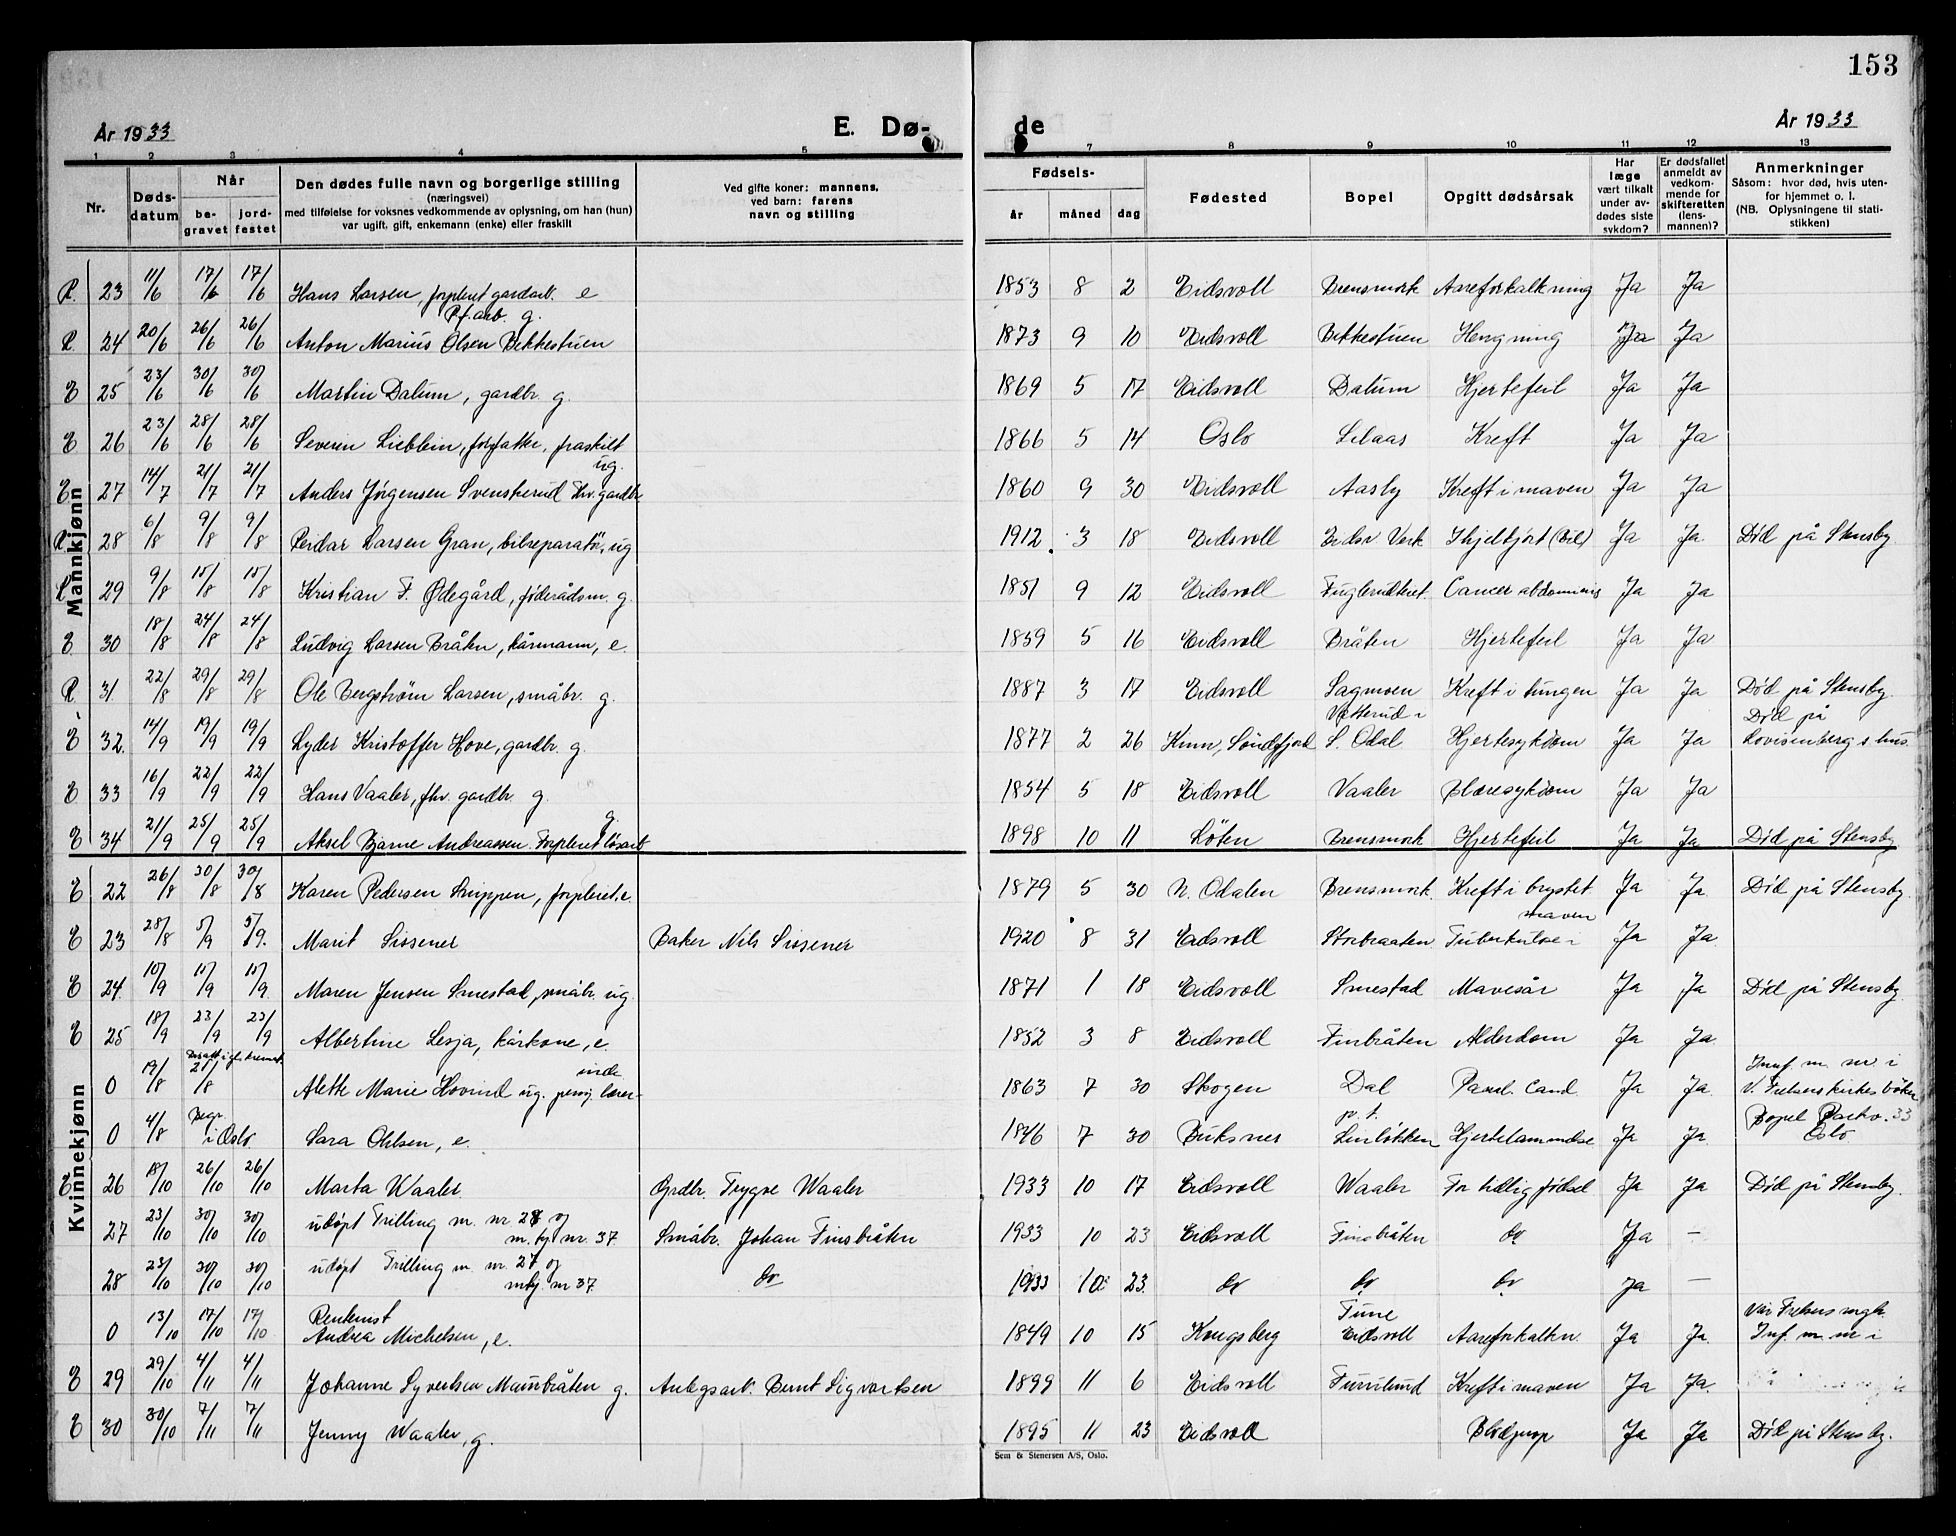 153
År 1933 E. Dø- de År 1933
1 2 3 4 5 7 8 9 10 11 12 13
Nr. Døds-datum Når be-gravet jord-festet
Den dødes fulle navn og borgerlige stilling
(næringsvei)
med tilføielse for voksnes vedkommende av oplysning, om han (hun)
var ugift, gift, enkemann (enke) eller fraskilt
Ved gifte koner: mannens.
ved barn: farens
navn og stilling
Fødsels-
år måned dag
Fødested Bopel Opgitt dødsårsak
Har læge vært tilkalt under av-dødes siste sykdom?
Er dødsfallet anmeldt av vedkom-mende for skifteretten (lens-mannen)?
Anmerkninger
Såsom: hvor død, hvis uten-
for hjemmet o. l.
(NB. Oplysningene til stati-
stikken)
Mannkjønn
R. 23 11/6 17/6 17/6 Hans Larsen, forpleiet gardarb. e 1853 8 2 Eidsvoll Brensmork Aareforkalkning Ja Ja
R. 24 20/6 26/6 26/6 Anton Marius Olsen Bekkestuen Pf. arb. g. 1873 9 10 Eidsvoll Bekkestuen Hengning Ja Ja
E 25 23/6 30/6 30/6 Martin Dalum, gardbr. g. 1869 5 17 Eidsvoll Dalum Hjertefeil Ja Ja
E 26 23/6 28/6 28/6 Severin Lieblein, forfatter, fraskilt 1866 5 14 Oslo Kreft Ja Ja
E 27 14/7 21/7 21/7 Anders Jørgensen Svenskerud fhv. gardbr ug. 1860 9 30 Eidsvoll Aasby Kreft i maven Ja Ja
R 28 6/8 9/8 9/8 Reidar Larsen Gran, bilreparatør, ug 1912 3 18 Eidsvoll Eidsv Verk Ihjelkjørt (Bil) Ja Ja Død på Stensby
R 29 9/8 15/8 15/8 Kristian F. Ødegård, føderådsm. g. 1851 9 12 Eidsvoll Cancer abdominis Ja Ja
E 30 18/8 24/8 24/8 Ludvig Larsen Bråten, kårmann, e. 1859 5 16 Eidsvoll Bråten Hjertefeil Ja Ja
R. 31. 22/8 29/8 29/8 Ole Bergstrøm Larsen, småbr. g. 1887 3 17 Eidsvoll Sagmoen Kreft i tungen Ja Ja Død på Stensby.
E 32. 14/9 19/9 19/9 Lyder Kristoffer Hove, gardbr. g. 1877 2 26 Kinn, Søndfjord Vetterud i S. Odal Hjertesykdom Ja Ja Død på Lovisenberg s hus.
E 33 16/9 22/9 22/9 Hans Vaaler, fhv. gardbr. g. 1854 5 18 Eidsvoll Vaaler Blæresykdom Ja Ja
E 34 21/9 25/9 25/9 Aksel Bjarne Andreassen. Forpleiet løsarb g. 1898 10 11 Løten Brensmork Hjertefeil Ja Ja Død på Stensby
Kvinnekjønn
E 22 26/8 30/8 30/8 Karen Pedersen Snippen, forpleiet. e. 1879 5 30 N. Odalen Brensmork. Kreft i brystet Ja Ja. Død på Stensby.
E 23 28/8 5/9 5/9. Marit Sissener Baker Nils Sissener 1920 8 31 Eidsvoll Storbraaten Tuberkulose i maven Ja Ja.
E 24. 10/9 15/9 15/9. Maren Jensen Smestad, småbr. ug. 1871 1 18 Eidsvoll Smestad Mavesår Ja Ja Død på Stensby
E 25 18/9 23/9 23/9 Albertine Lesja, kårkone, e. 1852 3 8 Eidsvoll Finbråten Alderdom Ja Ja.
0 19/8 21/8 Alette Marie Hovind ug. pensj. lærer-inde 1863 7 30 Skogen Dal Ja Ja. Innf. m. nr. i V. Frelsers kirkes bøker
0 4/8 Begr. i Oslo Sara Ohlsen, e. 1846 7 30 Buksnes Hjertelammelse Ja Ja. Bopel Parkv. 33 Oslo
E 26 18/10 26/10 26/10 Marta Waaler. Grdbr. Trygve Waaler 1933 10 17 Eidsvoll Waaler For tidlig fødsel Ja Ja Død på Stensby.
27 23/10 30/10 30/10 udøpt Trilling m. nr. 28 og m. kj nr. 37. Småbr. Johan Finsbråten 1933 10 23 Eidsvoll Finsbråten do Ja —
28 23/10 30/10 30/10 udøpt Trilling m. nr. 27 og mkj. nr 37. do 1933 10 23. do do do Ja —
0 13/10 17/10 17/10 Rentenist Andrea Michelsen, e. 1849 10 15 Kongsberg Eidsvoll Aareforkalkn. Ja Ja. Vår Frelsers mgh. Inf. m. nr i
E 29 29/10 4/11 4/11 Johanne Syvertsen Maurbråten g. Anlegsarb. Bernt Sigvartsen 1899 11 6 Eidsvoll Furulund Kreft i maven Ja Ja.
E 30 30/10 7/11 7/11 Jenny Waaler, g. 1895 11 23 Eidsvoll Blodprop Ja Ja Død på Stensby.
Sem & Stenersen A/S, Oslo.